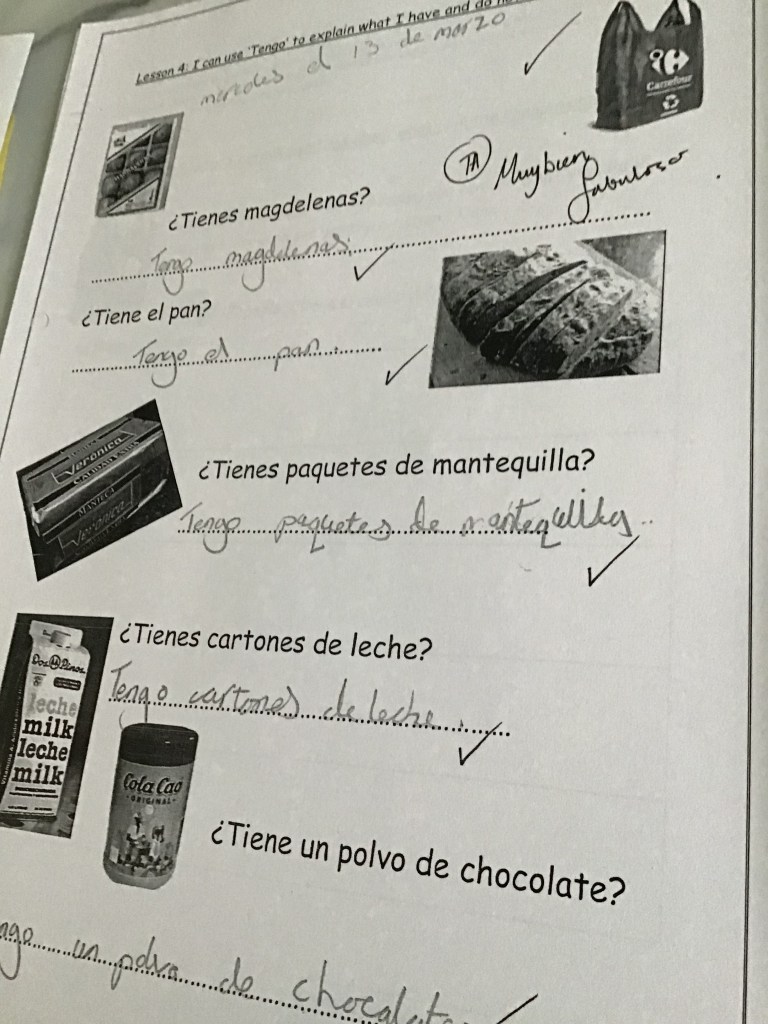 Lesson 4: I can use 'Tengo' to explain what I have and do
mercoles el 13 de marzo
Carrefour
TA Muy bien
fabuloso
¿Tienes magdelenas?
Tengo magdelenas.
¿Tiene el pan?
Tengo el pan.
Veronica
CALIDAD EXTRA
MANTECA
Veronica
¿Tienes paquetes de mantequilla?
Tengo paquetes de mantequilla
¿Tienes cartones de leche?
Tengo cartones de leche.
Dos Pinos
leche
milk
leche
milk
Cola Cao
ORIGINAL
¿Tiene un polvo de chocolate?
un polvo de chocolate